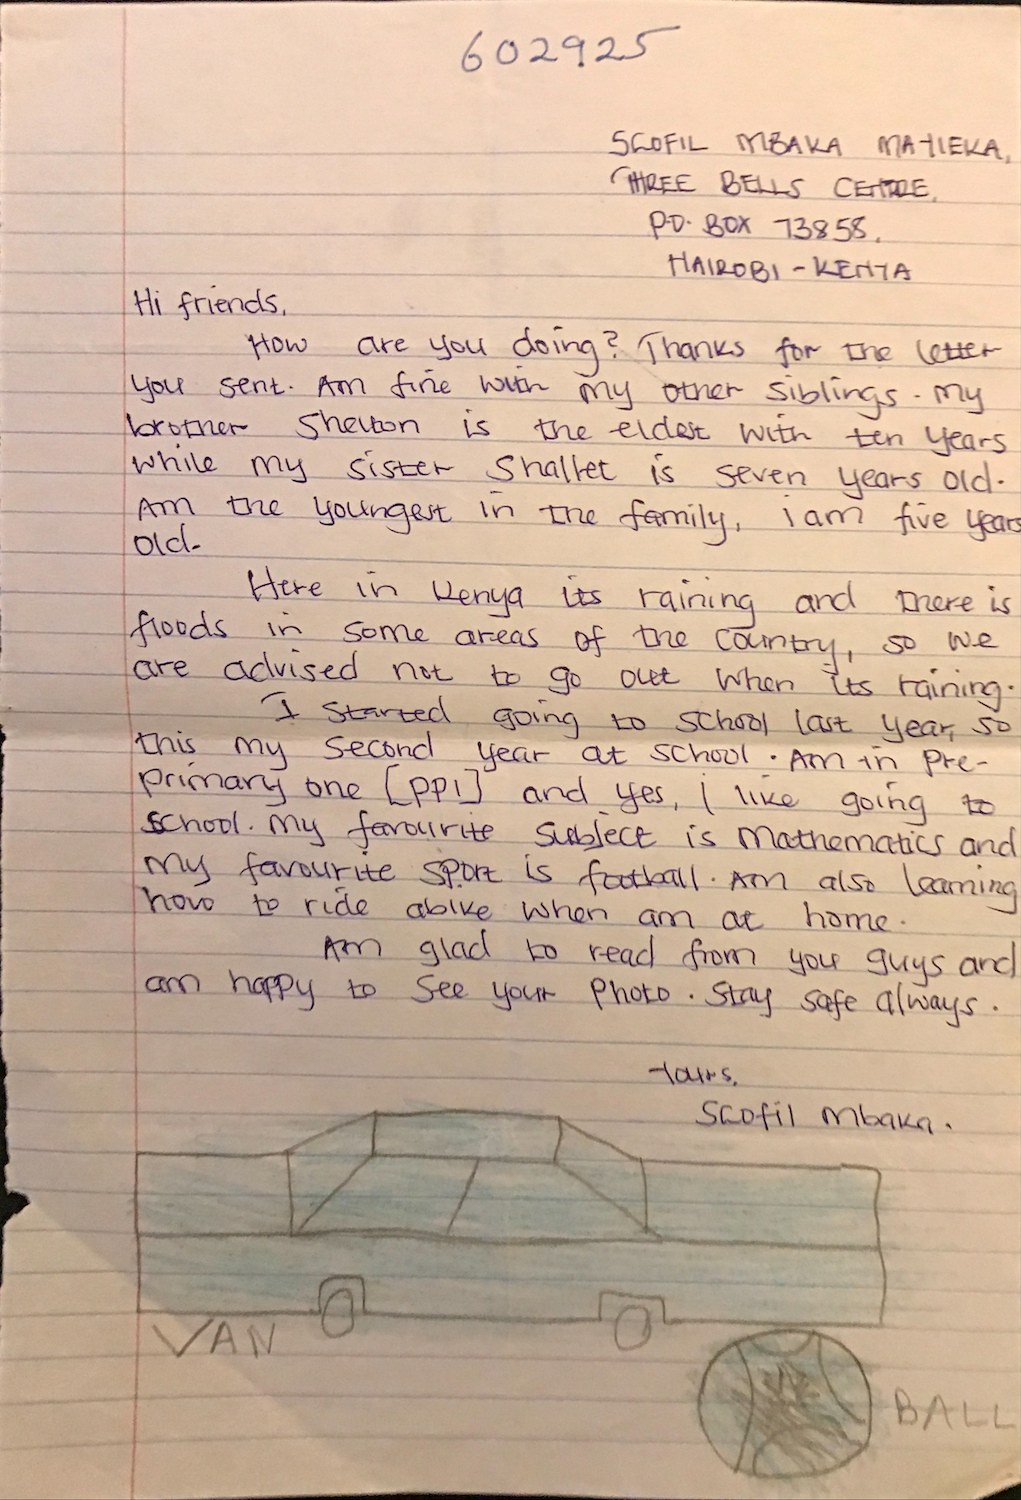 602925
SCOFIL MBAKA MATIEKA,
THREE BELLS CENTRE,
P.O. BOX 73858,
NAIROBI - KENYA
Hi friends,
How are you doing? Thanks for the letter
you sent. Am fine with my other siblings. My
brother Shelton is the eldest with ten years
while my sister Shallet is seven years old.
Am the youngest in the family, i am five years
old.
Here in Kenya its raining and there is
floods in some areas of the country, so we
are advised not to go out when its raining.
I started going to school last year, so
this my second year at school. Am in pre-
primary one [PP1] and yes, i like going to
school. My favourite subject is Mathematics and
my favourite sport is football. Am also learning
how to ride abike when am at home.
Am glad to read from you guys and
am happy to see your photo. Stay safe always.
Yours,
Scofil Mbaka.
VAN
BALL